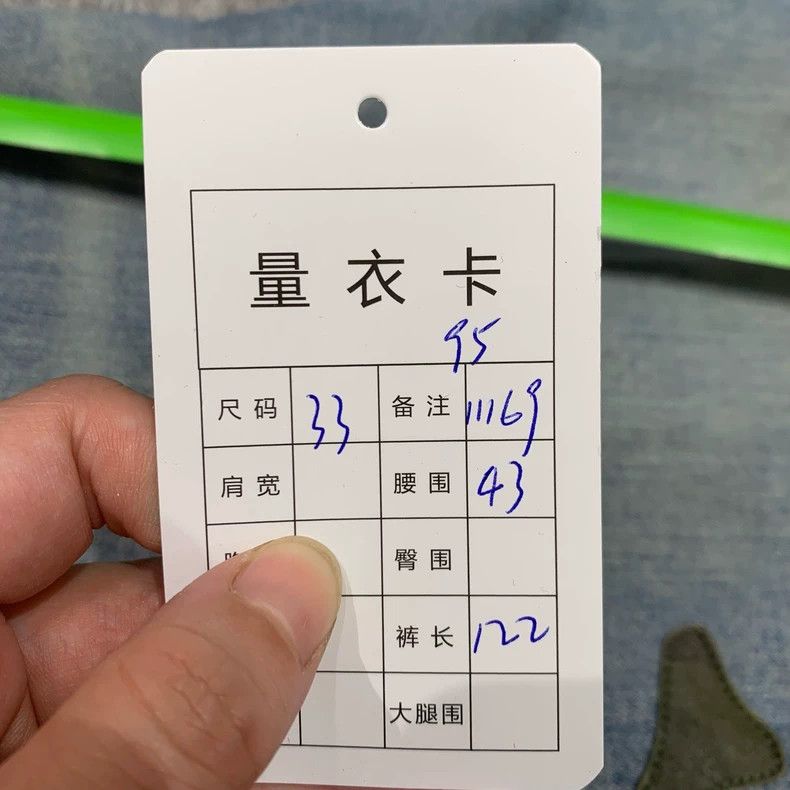 量衣卡
95
尺码 33 备注 11169
肩宽 腰围 43
臀围
裤长 122
大腿围